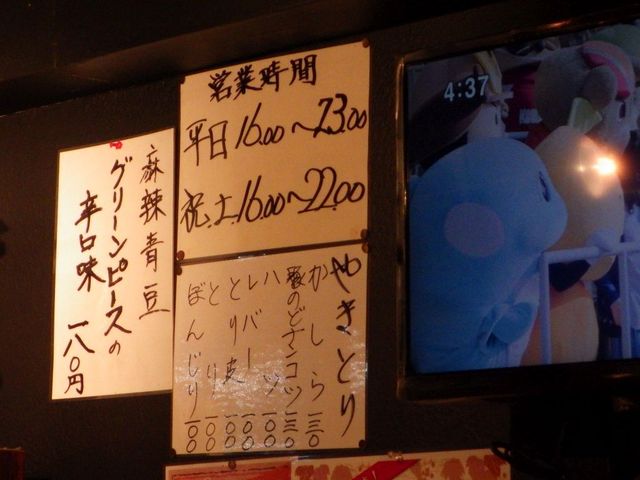 営業時間
平日16.00〜23.00
祝.土.16.00〜22.00
麻辣青豆
グリーンピースの
辛口味 一八〇円
やきとり
かしら 一三〇
豚のどナンコツ 一三〇
ハツ 一〇〇
レバー 一〇〇
とり皮 一〇〇
とり 一〇〇
ぼんじり 一〇〇
4:37